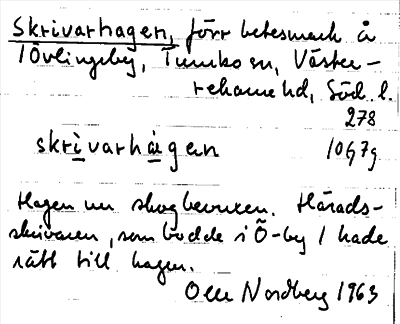 Skrivarhagen, förr betesmark å
Övlingeby, Tumbo sn, Väster-
rekarne hd, Södl.
278
skrìvarhàgen 10G7g
Hagen nu skogbevuxen. Härads-
skrivaren, som bodde i Ö-by 1 hade
rätt till hagen.
Olle Nordberg 1963